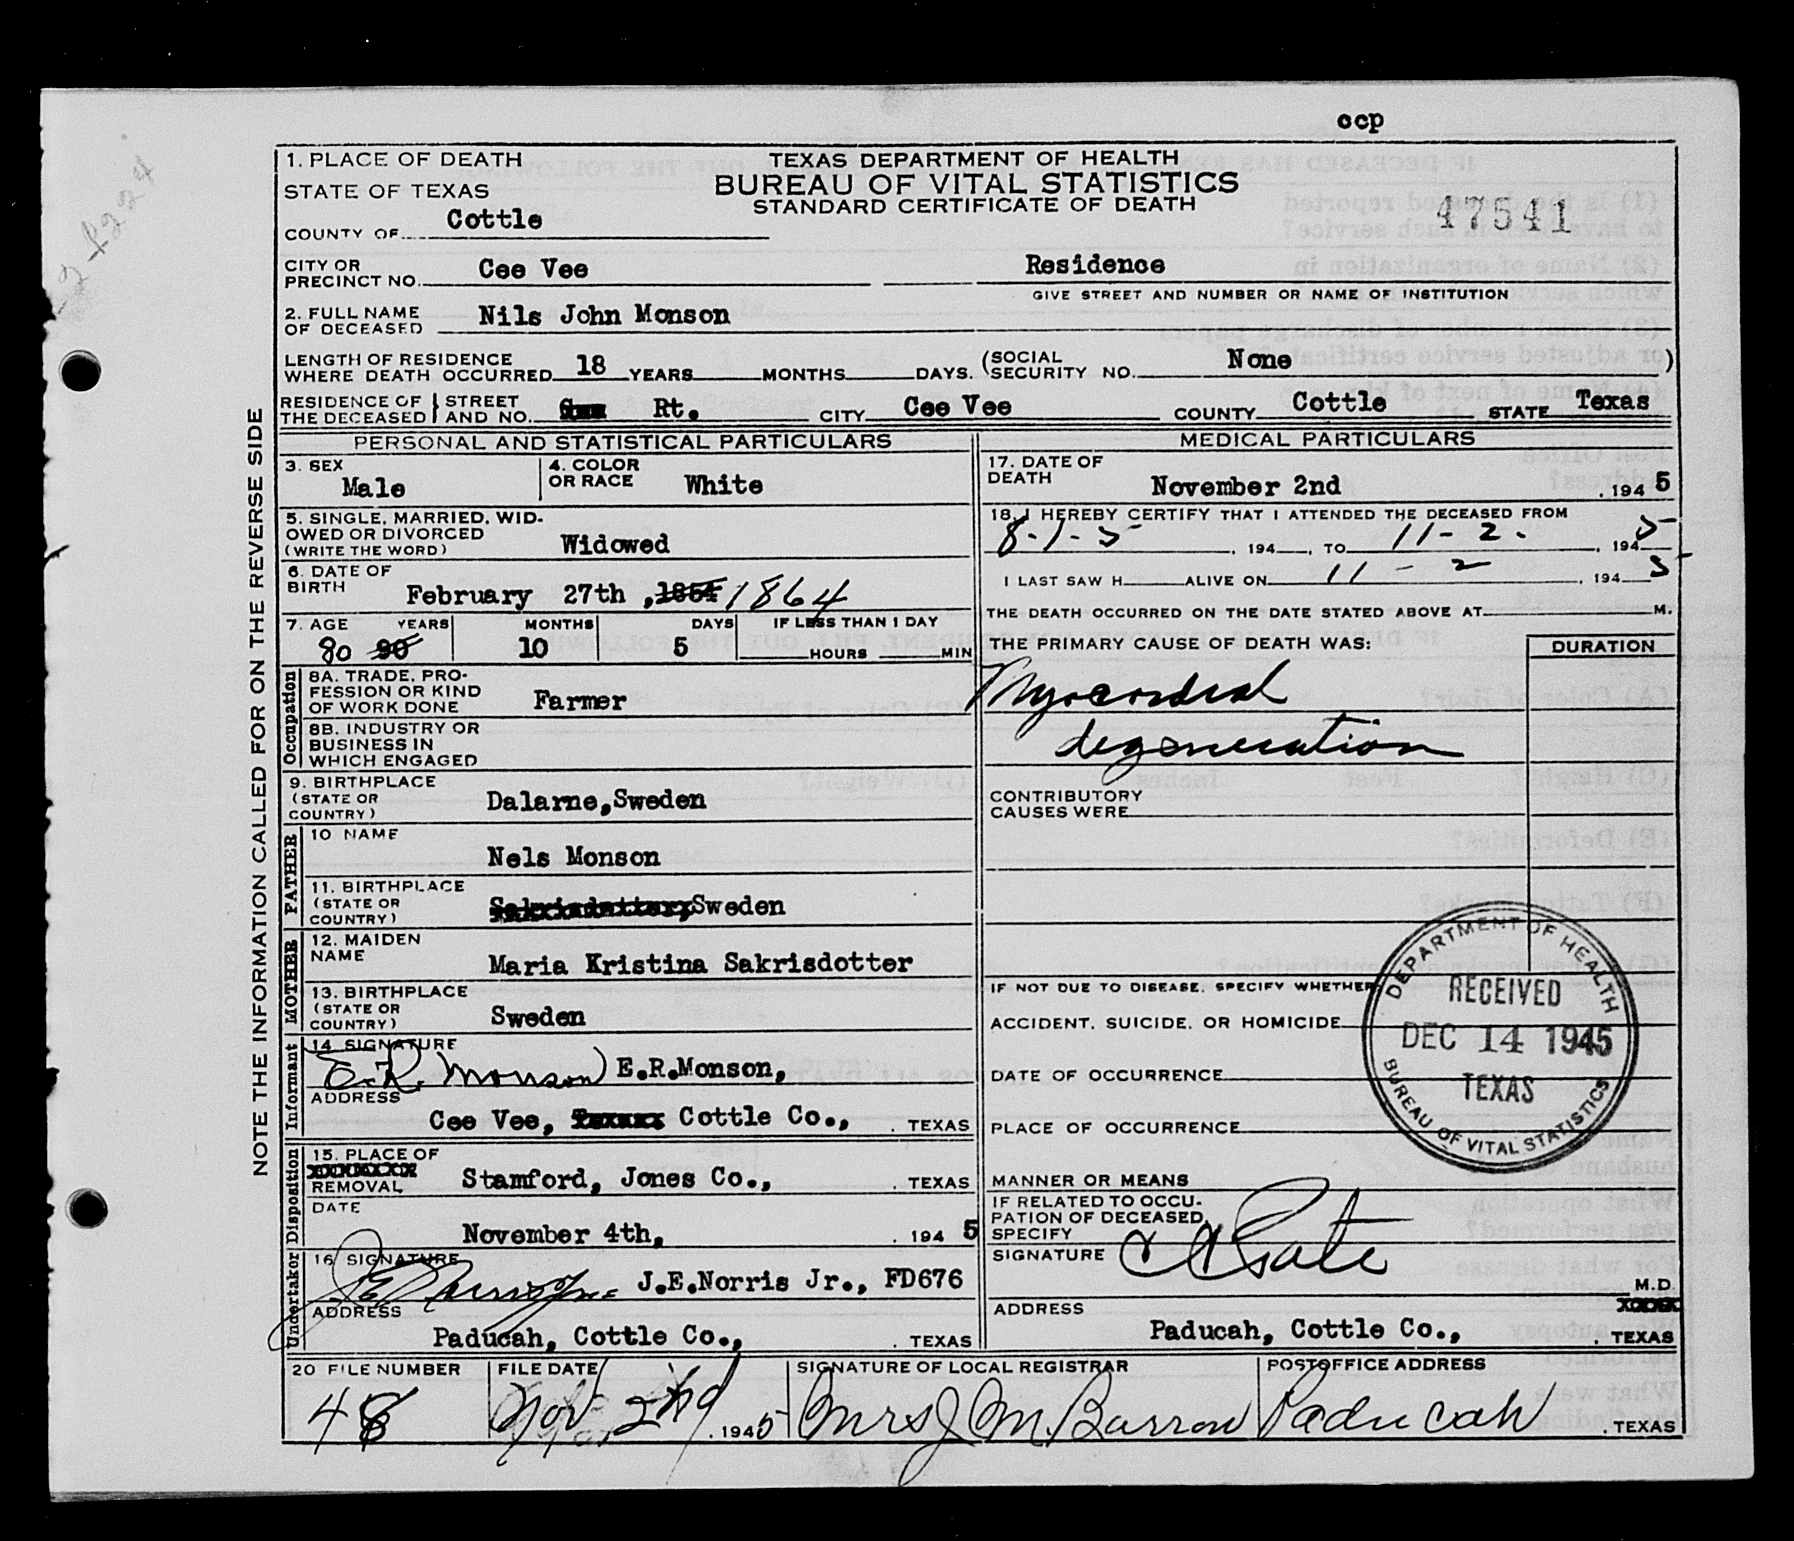 ccp
1. PLACE OF DEATH
STATE OF TEXAS
COUNTY OF Cottle
TEXAS DEPARTMENT OF HEALTH
BUREAU OF VITAL STATISTICS
STANDARD CERTIFICATE OF DEATH
47541
CITY OR
PRECINCT NO. Cee Vee Residence
GIVE STREET AND NUMBER OR NAME OF INSTITUTION
2. FULL NAME
OF DECEASED Nils John Monson
LENGTH OF RESIDENCE
WHERE DEATH OCCURRED 18 YEARS MONTHS DAYS. (SOCIAL SECURITY NO. None )
RESIDENCE OF THE DECEASED } STREET AND NO. Rt. CITY Cee Vee COUNTY Cottle STATE Texas
NOTE THE INFORMATION CALLED FOR ON THE REVERSE SIDE
PERSONAL AND STATISTICAL PARTICULARS
3. SEX Male
4. COLOR OR RACE White
5. SINGLE, MARRIED, WID-
OWED OR DIVORCED
(WRITE THE WORD) Widowed
6. DATE OF
BIRTH February 27th, 1864
7. AGE YEARS MONTHS DAYS IF LESS THAN 1 DAY
80 90 10 5 HOURS MIN
Occupation
8A. TRADE, PRO-
FESSION OR KIND
OF WORK DONE Farmer
8B. INDUSTRY OR
BUSINESS IN
WHICH ENGAGED
9. BIRTHPLACE
(STATE OR
COUNTRY) Dalarne, Sweden
FATHER
10 NAME
Nels Monson
11. BIRTHPLACE
(STATE OR
COUNTRY) Sweden
MOTHER
12. MAIDEN
NAME Maria Kristina Sakrisdotter
13. BIRTHPLACE
(STATE OR
COUNTRY) Sweden
Informant
14 SIGNATURE
E.R. Monson E.R.Monson,
ADDRESS
Cee Vee, Cottle Co., . TEXAS
Disposition
15. PLACE OF
REMOVAL Stamford, Jones Co., . TEXAS
DATE
November 4th, . 194 5
Undertaker
16 SIGNATURE
J.E.Norris Jr., FD676
ADDRESS
Paducah, Cottle Co., . TEXAS
MEDICAL PARTICULARS
17. DATE OF
DEATH November 2nd . 194 5
18. I HEREBY CERTIFY THAT I ATTENDED THE DECEASED FROM
8-1-5 , 194 , TO 11-2. , 194 5
I LAST SAW H ALIVE ON 11-2 , 194 5
THE DEATH OCCURRED ON THE DATE STATED ABOVE AT M.
THE PRIMARY CAUSE OF DEATH WAS: DURATION
Myocordial
degeneration
CONTRIBUTORY
CAUSES WERE
IF NOT DUE TO DISEASE, SPECIFY WHETHER:
ACCIDENT, SUICIDE, OR HOMICIDE
DATE OF OCCURRENCE
PLACE OF OCCURRENCE
MANNER OR MEANS
DEPARTMENT OF HEALTH
RECEIVED
DEC 14 1945
TEXAS
BUREAU OF VITAL STATISTICS
IF RELATED TO OCCU-
PATION OF DECEASED,
SPECIFY
SIGNATURE
M.D.
ADDRESS
Paducah, Cottle Co., . TEXAS
20 FILE NUMBER FILE DATE SIGNATURE OF LOCAL REGISTRAR POSTOFFICE ADDRESS
48 Nov 2nd , 1945 Mrs J M. Barron Paducah . TEXAS